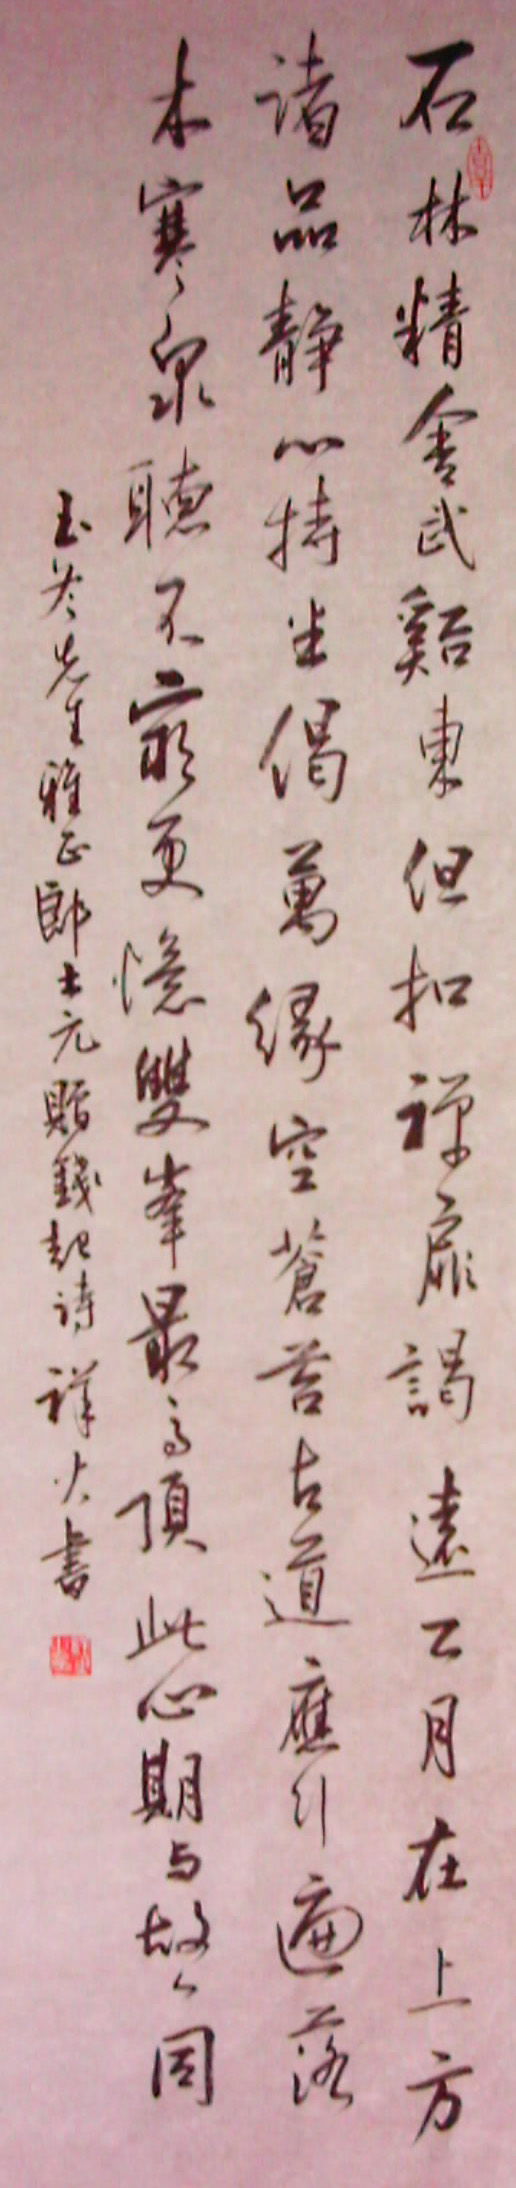 石林精舍武谿東但扣禪扉謁遠公月在上方
諸品靜心持半偈萬緣空蒼苔古道應行遍落
木寒泉聽不窮更憶雙峯最高頂此心期与故人同
玉先生雅正郎士元贈錢起詩祥大書